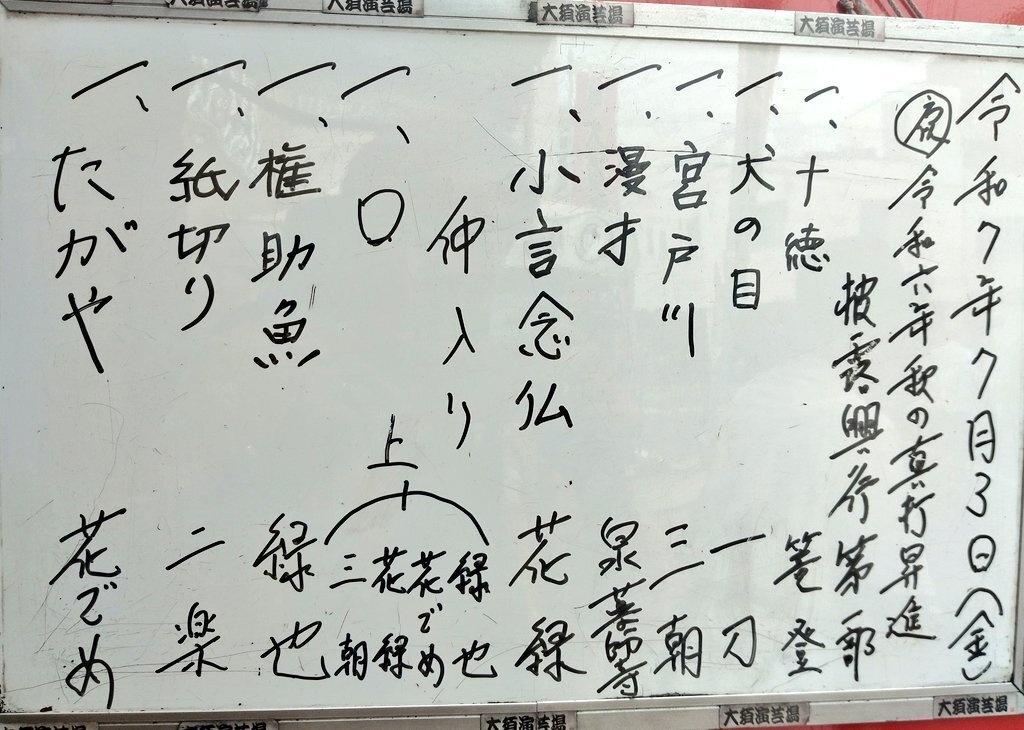 令和7年7月3日(金)
夜 令和六年秋の真打昇進
披露興行 第 部
一、十徳 篝登
一、犬の目 一刀
一、宮戸川 三朝
一、漫才 泉薬師寺
一、小言念仏 花緑
仲入り
一、〇上
緑也
花でめ
花緑
三朝
一、権助魚 緑也
一、紙切り 二楽
一、たがや 花でめ
大須演芸場
大須演芸場
大須演芸場
大須演芸場
大須演芸場
大須演芸場
大須演芸場
大須演芸場
大須演芸場